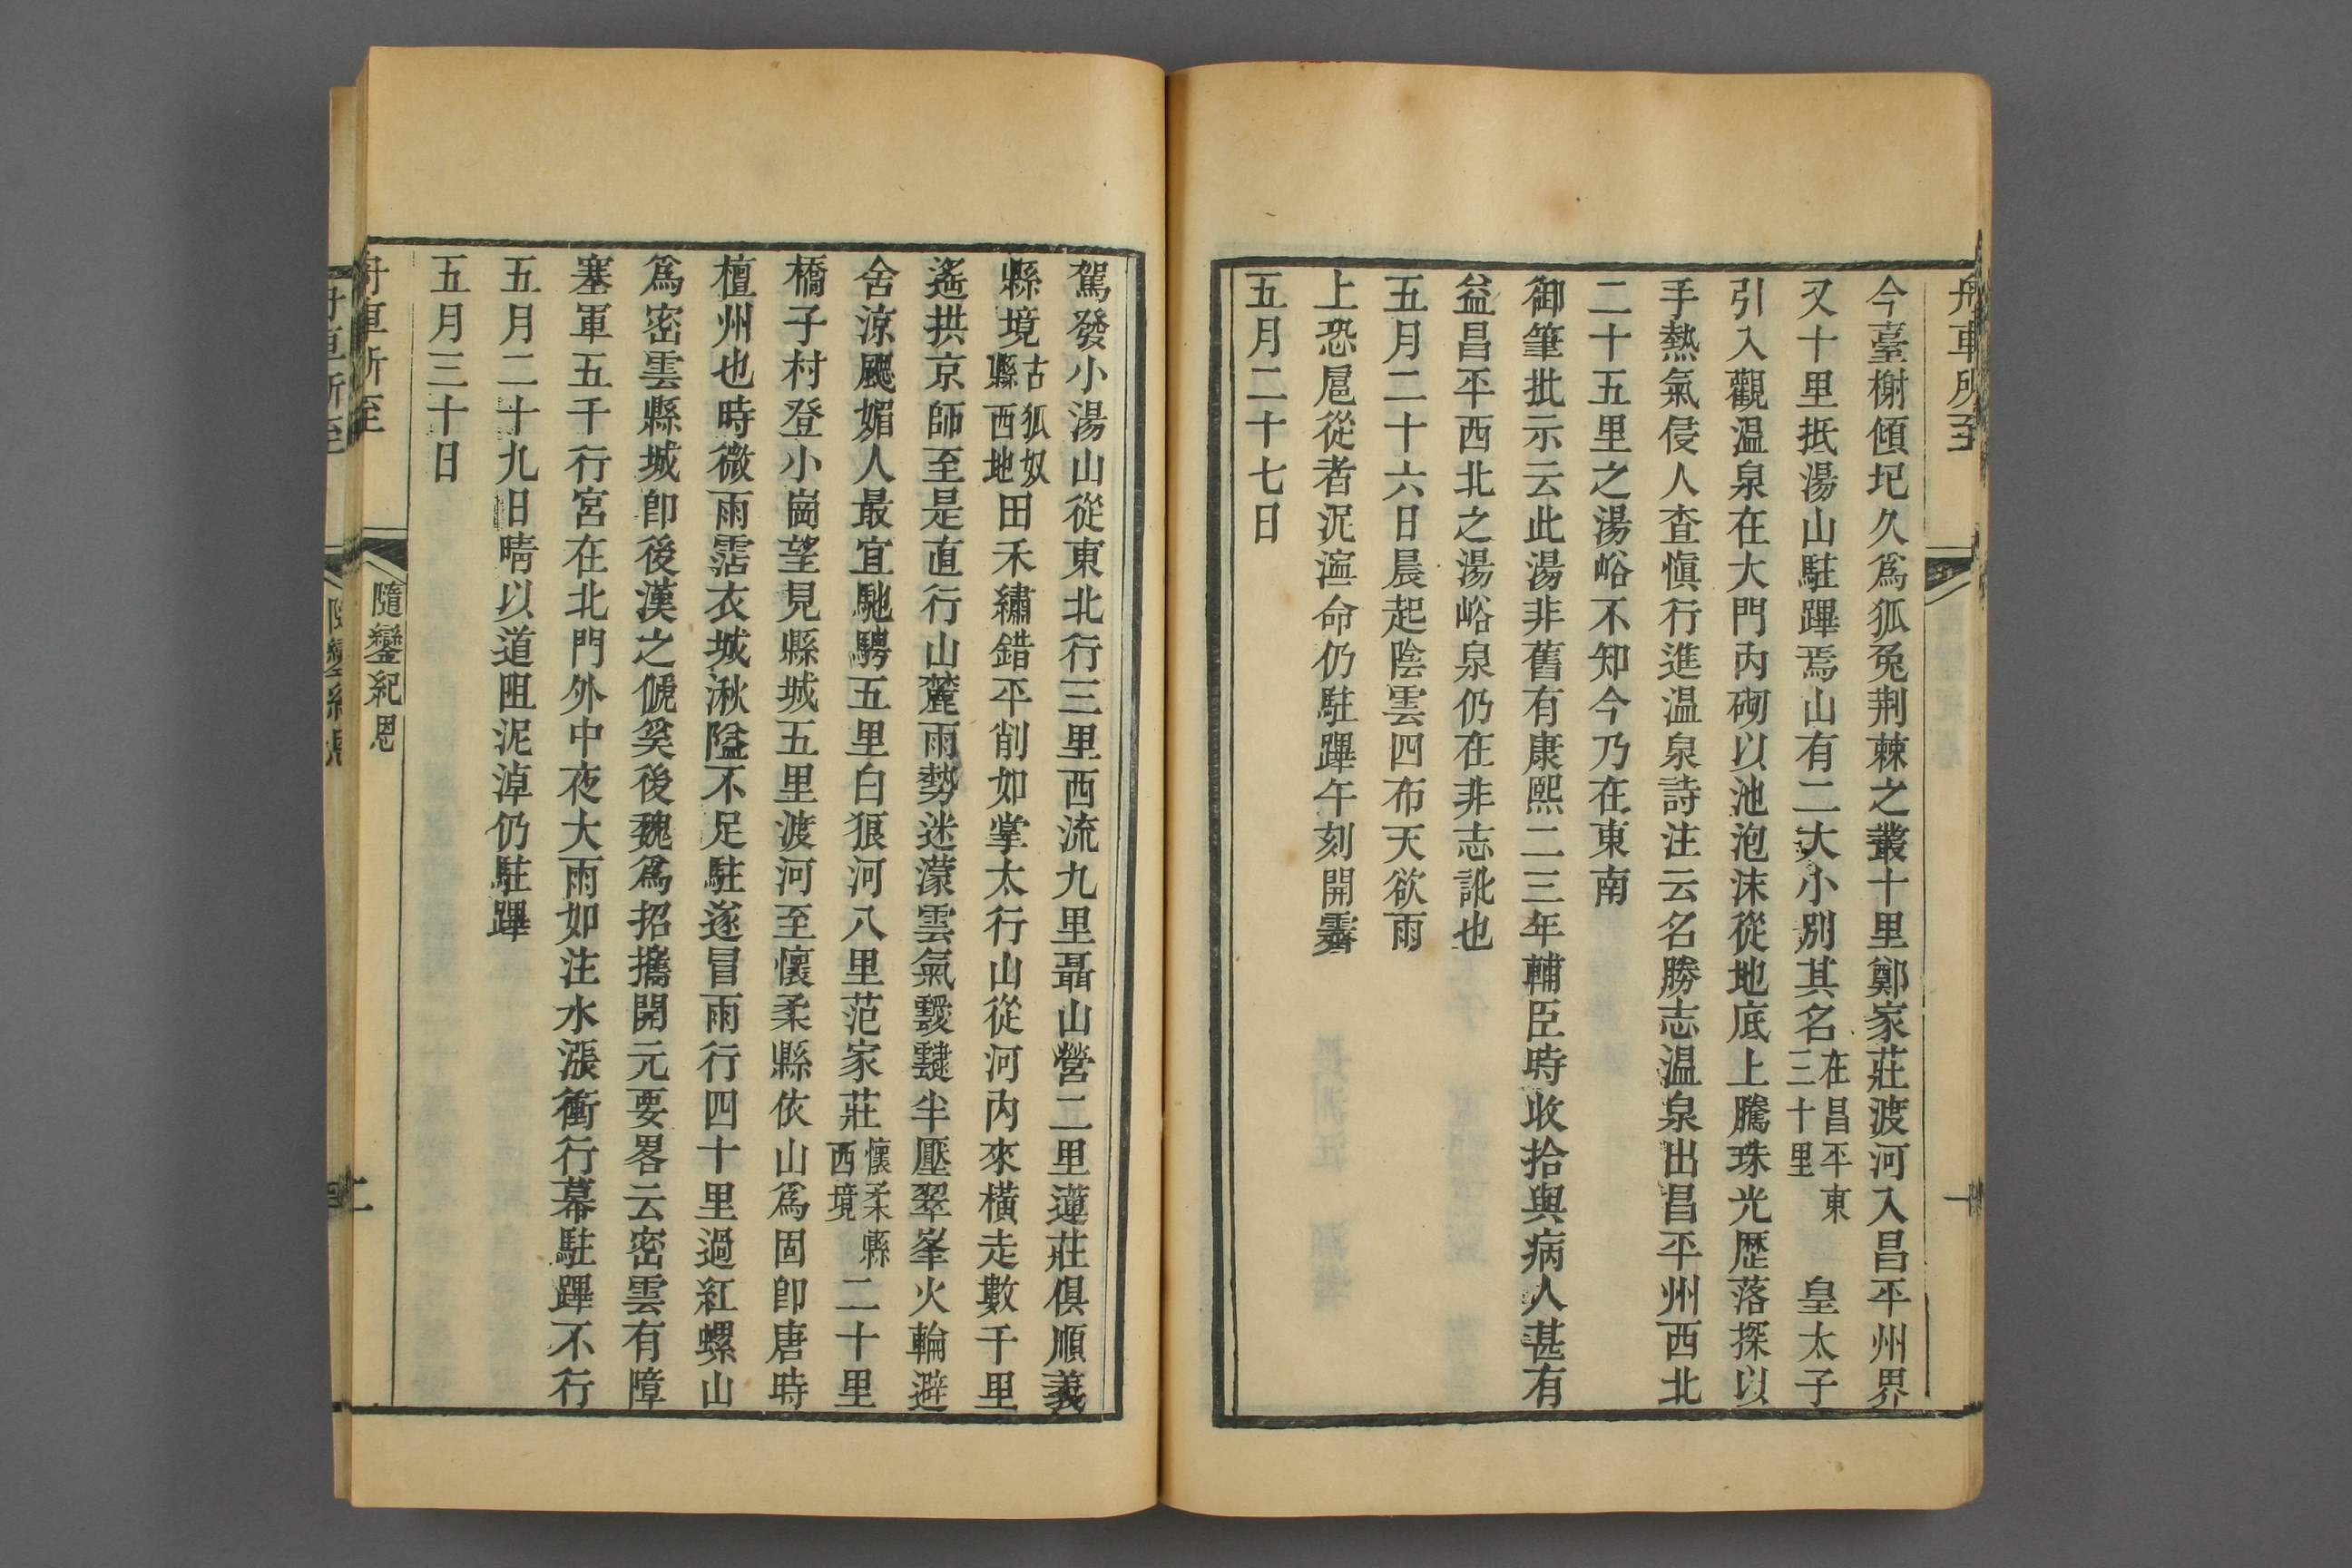 舟車所至
一
今臺榭傾圮久爲狐兔荆棘之叢十里鄭家莊渡河入昌平州界
又十里抵湯山駐蹕焉山有二大小别其名在昌平東三十里　皇太子
引入觀温泉在大門内砌以池泡沫從地底上騰珠光歴落探以
手熱氣侵人查愼行進温泉詩注云名勝志温泉出昌平州西北
二十五里之湯峪不知今乃在東南
御筆批示云此湯非舊有康熙二三年輔臣時收拾與病人甚有
益昌平西北之湯峪泉仍在非志訛也
五月二十六日晨起陰雲四布天欲雨
上恐扈從者泥濘命仍駐蹕午刻開霽
五月二十七日
駕發小湯山從東北行三里西流九里聶山營二里蓮莊俱順義
縣境古狐奴縣西地田禾繡錯平削如掌太行山從河内來橫走數千里
遙拱京師至是直行山麓雨勢迷濛雲氣靉靆半壓翠峯火輪避
舍涼颸媚人最宜馳騁五里白狼河八里范家莊懷柔縣西境二十里
橋子村登小崗望見縣城五里渡河至懷柔縣依山爲固卽唐時
檀州也時微雨霑衣城湫隘不足駐遂冒雨行四十里過紅螺山
爲密雲縣城卽後漢之傂奚後魏爲招攜開元要畧云密雲有障
塞軍五千行宮在北門外中夜大雨如注水漲衝行幕駐蹕不行
五月二十九日晴以道阻泥淖仍駐蹕
五月三十日
舟車所至
隨鑾紀恩
二